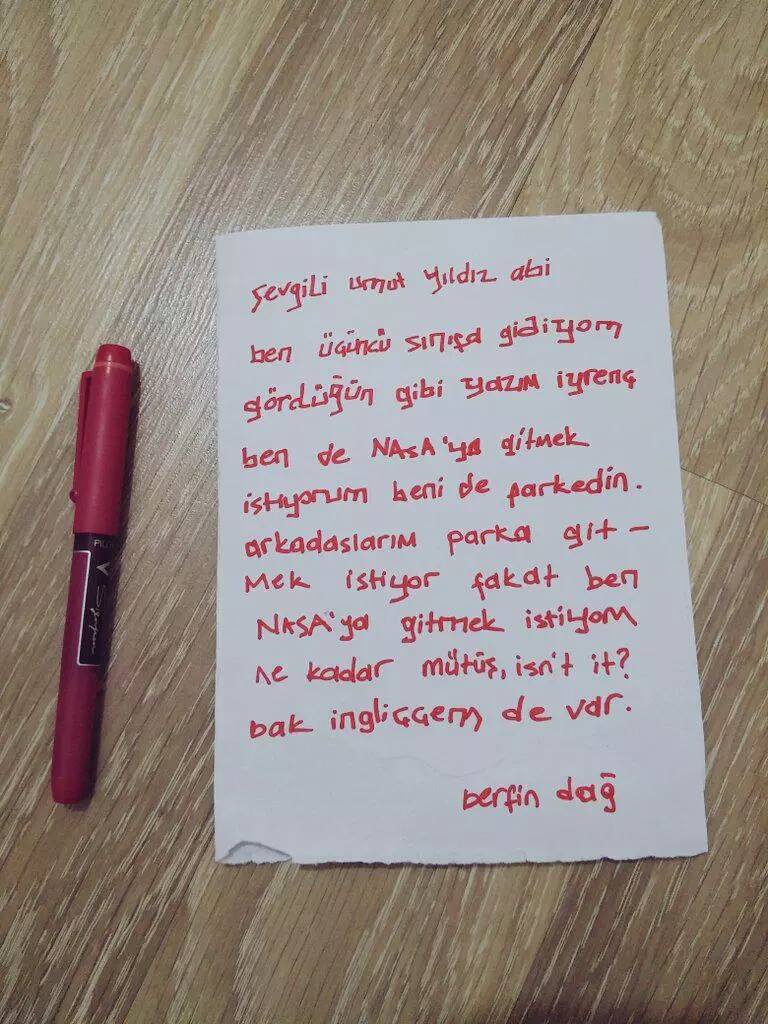 sevgili umut yıldız abi
ben üçüncü sınıfa gidiyom
gördüğün gibi yazım iyrenç
ben de NASA'ya gitmek
istiyorum beni de farkedin.
arkadaslarım parka git-
mek istiyor fakat ben
NASA'ya gitmek istiyom
ne kadar mütüş, isn't it?
bak ingliççem de var.
berfin dağ
PILOT
V